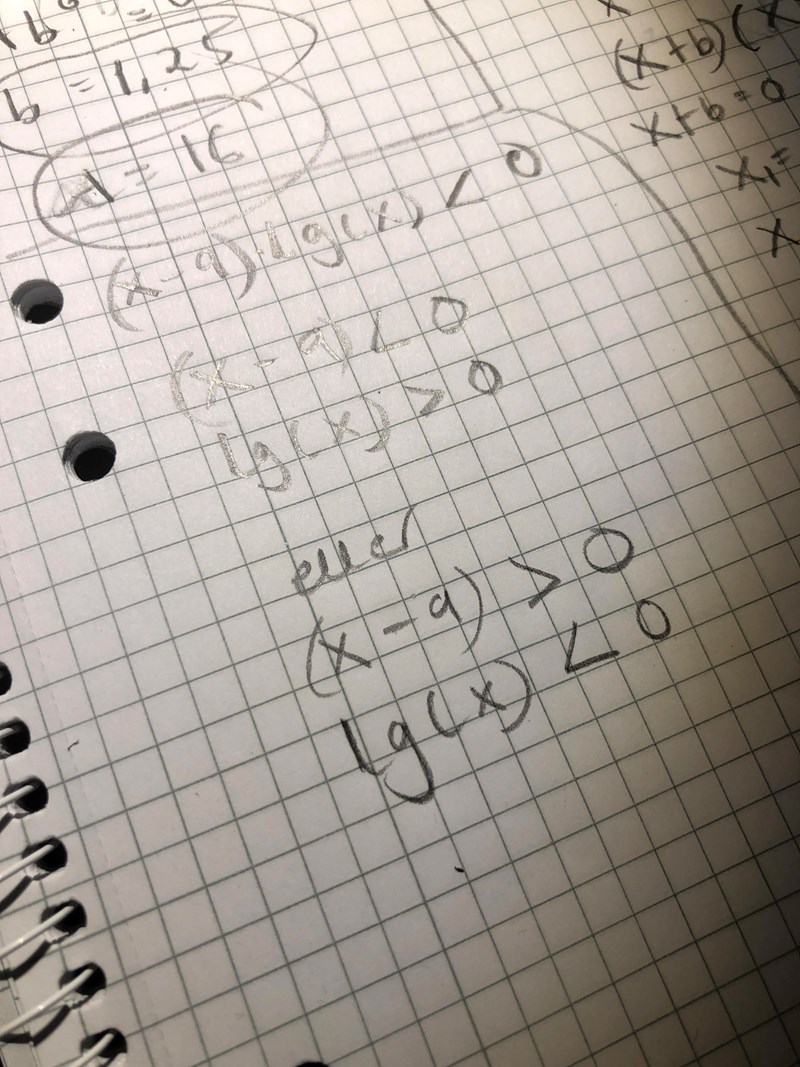 b = 1,25
A = 16
(x-9)·lg(x) < 0
(x-9) < 0
lg(x) > 0
eller
(x-9) > 0
lg(x) < 0
x
(x+b)(x
x+b=0
x₁=
x